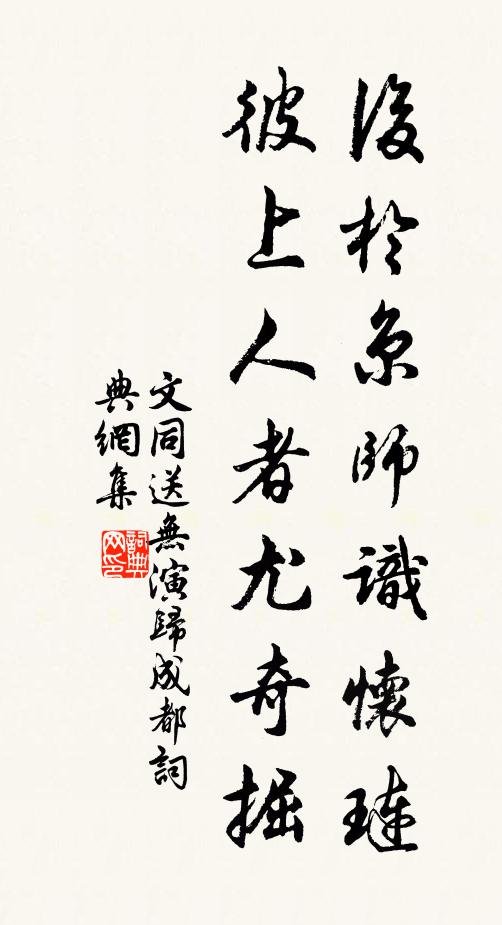 後於京師識懷璉
彼上人者尤奇掘
文同送無演歸成都詞
典網集
詞典网印